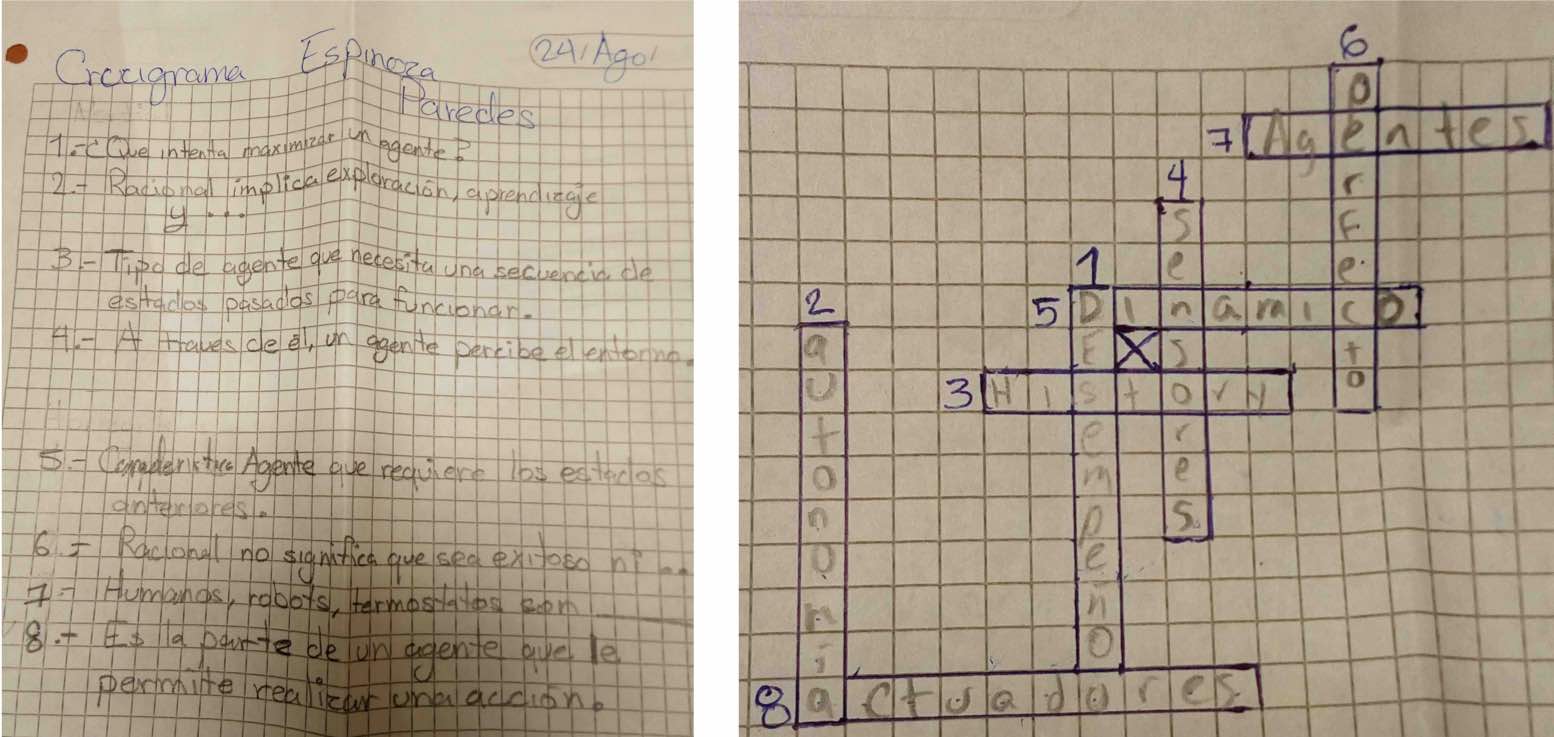 Crucigrama Espinoza Paredes 24/Ago/
1.- ¿Que intenta maximizar un agente?
2.- Racional implica exploración, aprendizaje
y ...
3.- Tipo de agente que necesita una secuencia de
estados pasados para funcionar.
4.- A traves de él, un agente percibe el entorno.
5.- Agente que requiere los estados
anteriores.
6.- Racional no significa que sea exitoso ni ...
7.- Humanos, robots, termostatos son
8.- Es la parte de un agente que le
permite realizar una acción.
6
Perfecto
7 Agentes
4
Sensores
1
DEsempeño
5 Dinamico
2
autonomia
3 History
8 actuadores